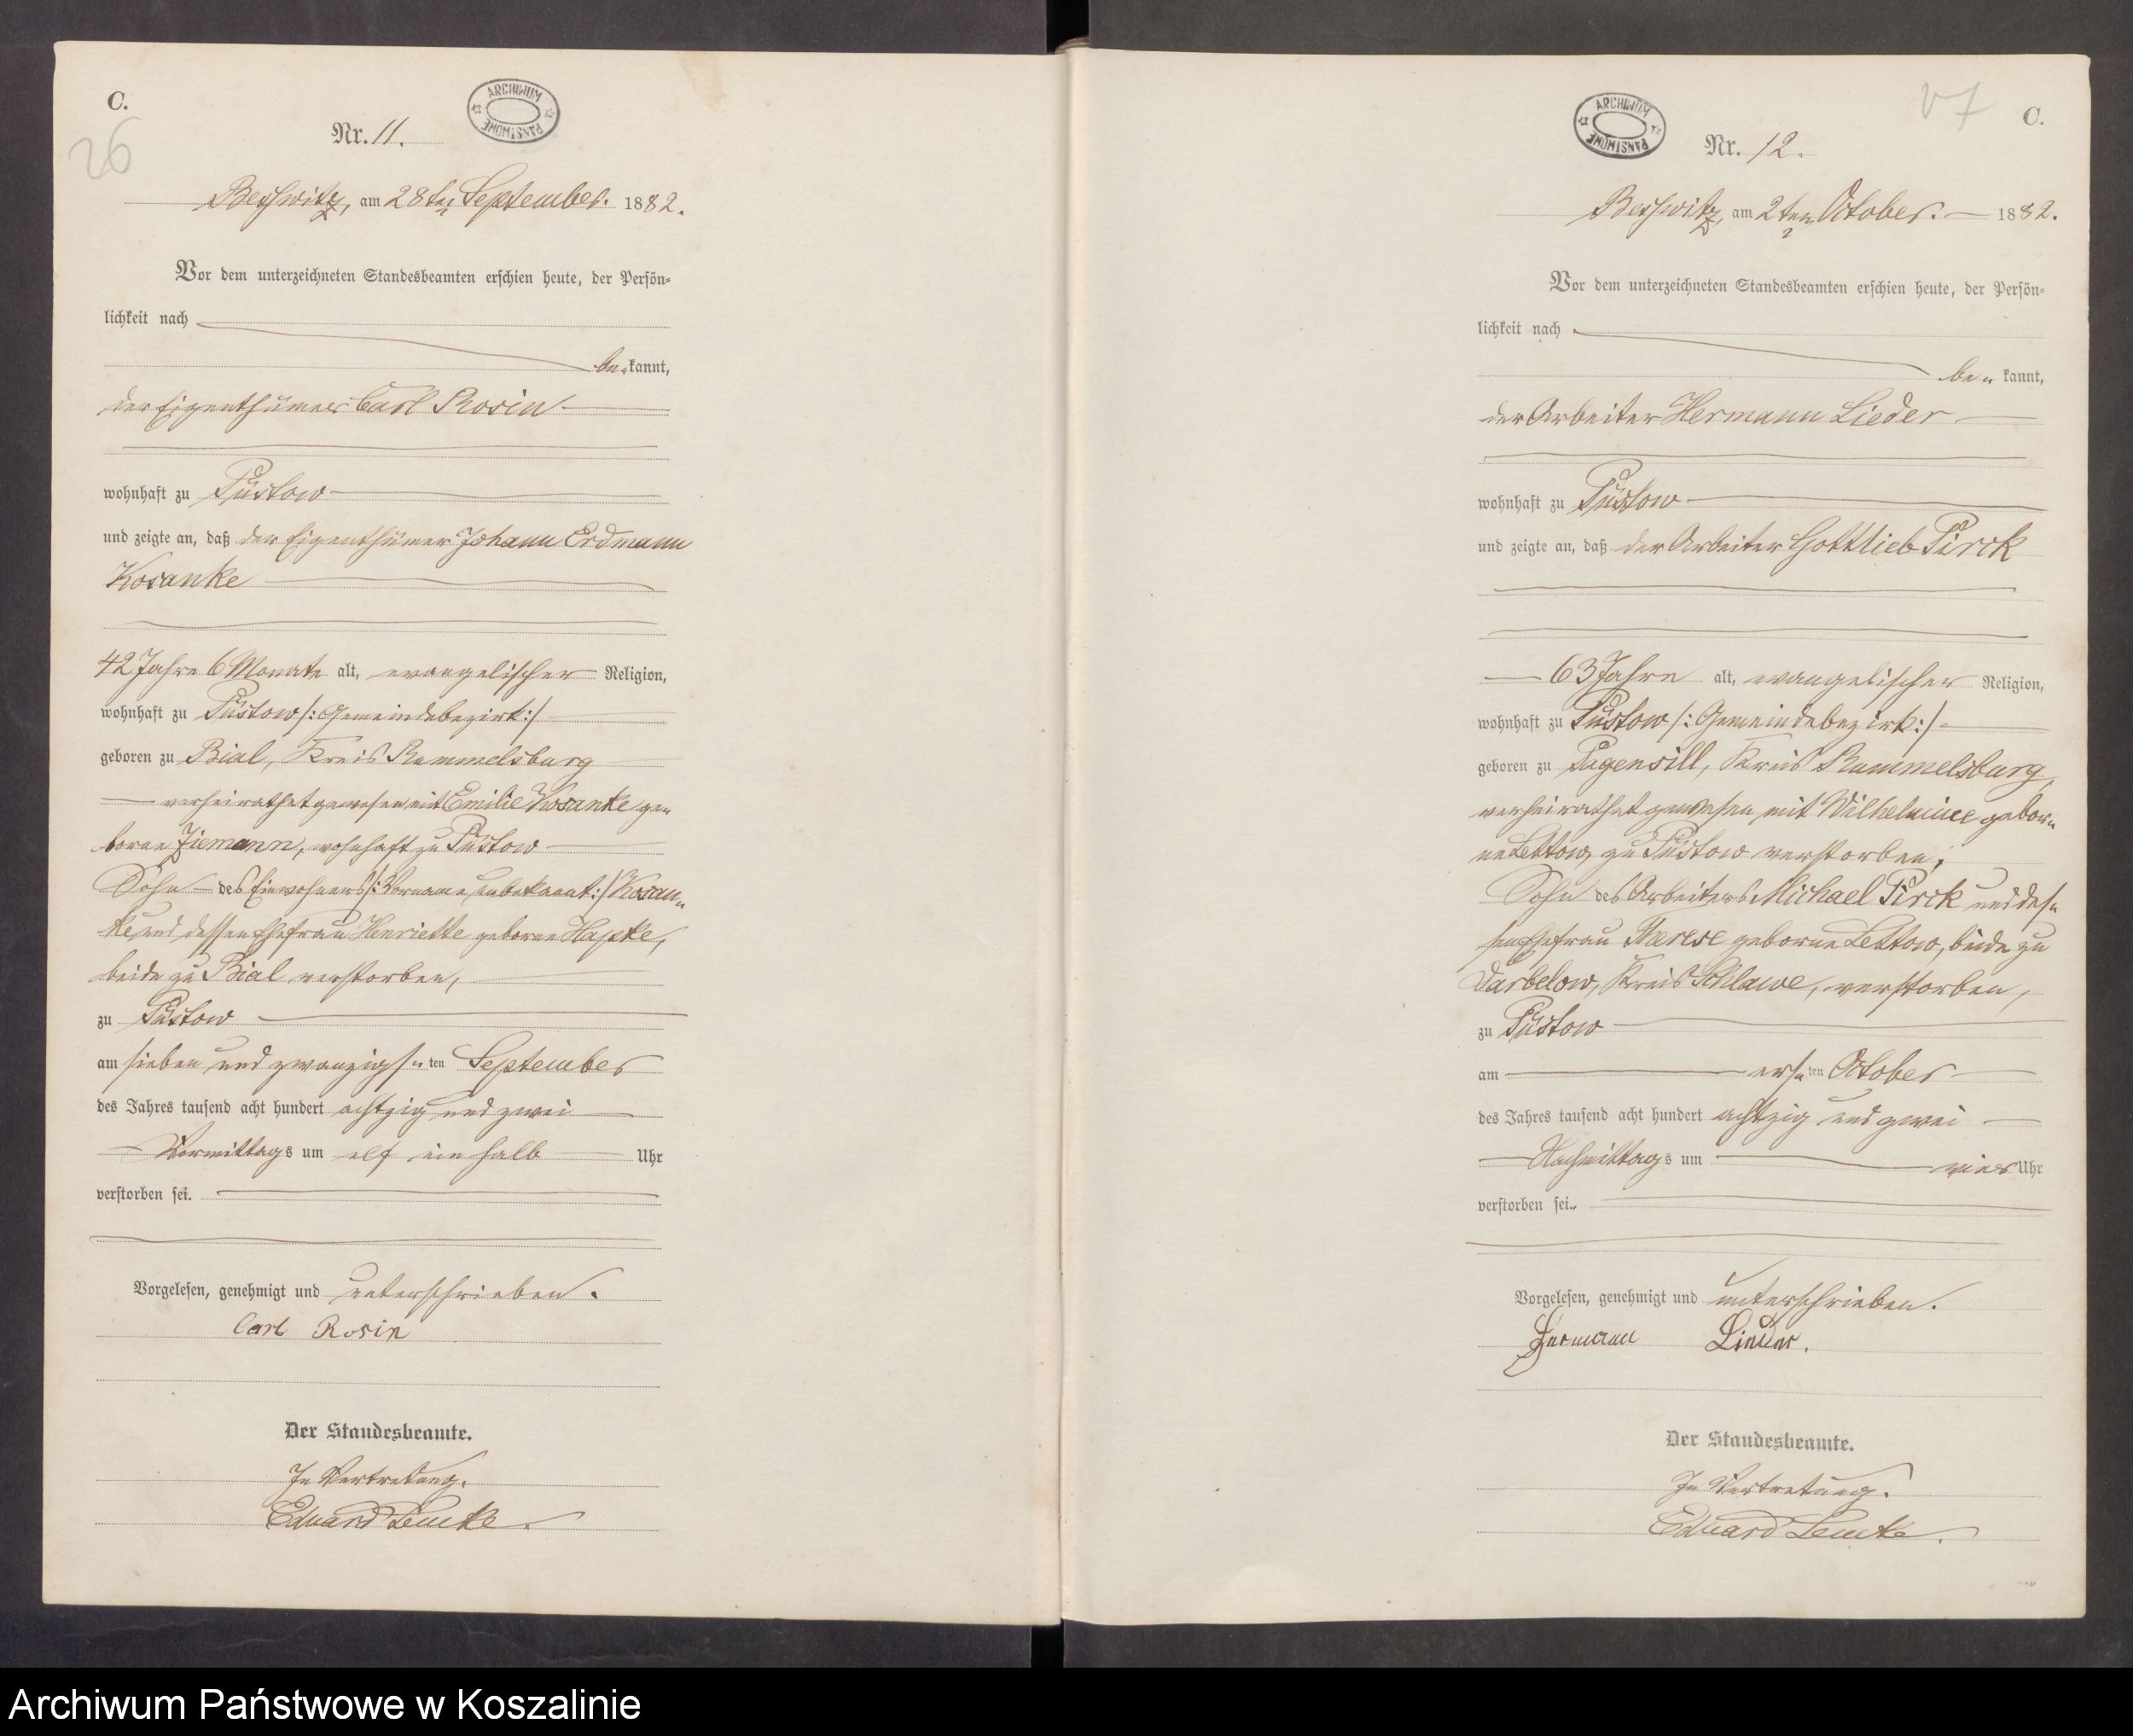 C.
26
ARCHIWUM PAŃSTWOWE
Nr. 11.
Beßwitz, am 28ten September. 1882.
Vor dem unterzeichneten Standesbeamten erschien heute, der Persön-
lichkeit nach
be„kannt,
der Eigenthümer Carl Rosin
wohnhaft zu Püstow
und zeigte an, daß der Eigenthümer Johann Erdmann
Kosanke
42 Jahre 6 Monate alt, evangelischer Religion,
wohnhaft zu Püstow /: Gemeindebezirk :/
geboren zu Bial, Kreis Rummelsburg
verheirathet gewesen mit Emilie Kosanke ge„
borne Ziemann, wohnhaft zu Püstow
Sohn des Einwohners /: Vorname unbekannt :/ Kosan„
ke und dessen Ehefrau Henriette geborne Hapke,
beide zu Bial verstorben,
zu Püstow
am sieben und zwanzigs„ten September
des Jahres tausend acht hundert achtzig und zwei
Vormittags um elf ein halb Uhr
verstorben sei.
Vorgelesen, genehmigt und unterschrieben.
Carl Rosin
Der Standesbeamte.
In Vertretung.
Eduard Lemke.
C.
ARCHIWUM PAŃSTWOWE
Nr. 12.
Beßwitz, am 2ten October. 1882.
Vor dem unterzeichneten Standesbeamten erschien heute, der Persön-
lichkeit nach
be„kannt,
der Arbeiter Hermann Lieder
wohnhaft zu Püstow
und zeigte an, daß der Arbeiter Gottlieb Pirck
63 Jahre alt, evangelischer Religion,
wohnhaft zu Püstow /: Gemeindebezirk :/
geboren zu Papensill, Kreis Rummelsburg,
verheirathet gewesen mit Wilhelmine gebor„
ne Lettow, zu Püstow verstorben,
Sohn des Arbeiters Michael Pirck und des„
sen Ehefrau Therese geborne Lettow, beide zu
Varbelow, Kreis Schlawe, verstorben,
zu Püstow
am ers„ten October
des Jahres tausend acht hundert achtzig und zwei
Nachmittags um vier Uhr
verstorben sei.
Vorgelesen, genehmigt und unterschrieben.
Hermann Lieder.
Der Standesbeamte.
In Vertretung.
Eduard Lemke.
Archiwum Państwowe w Koszalinie